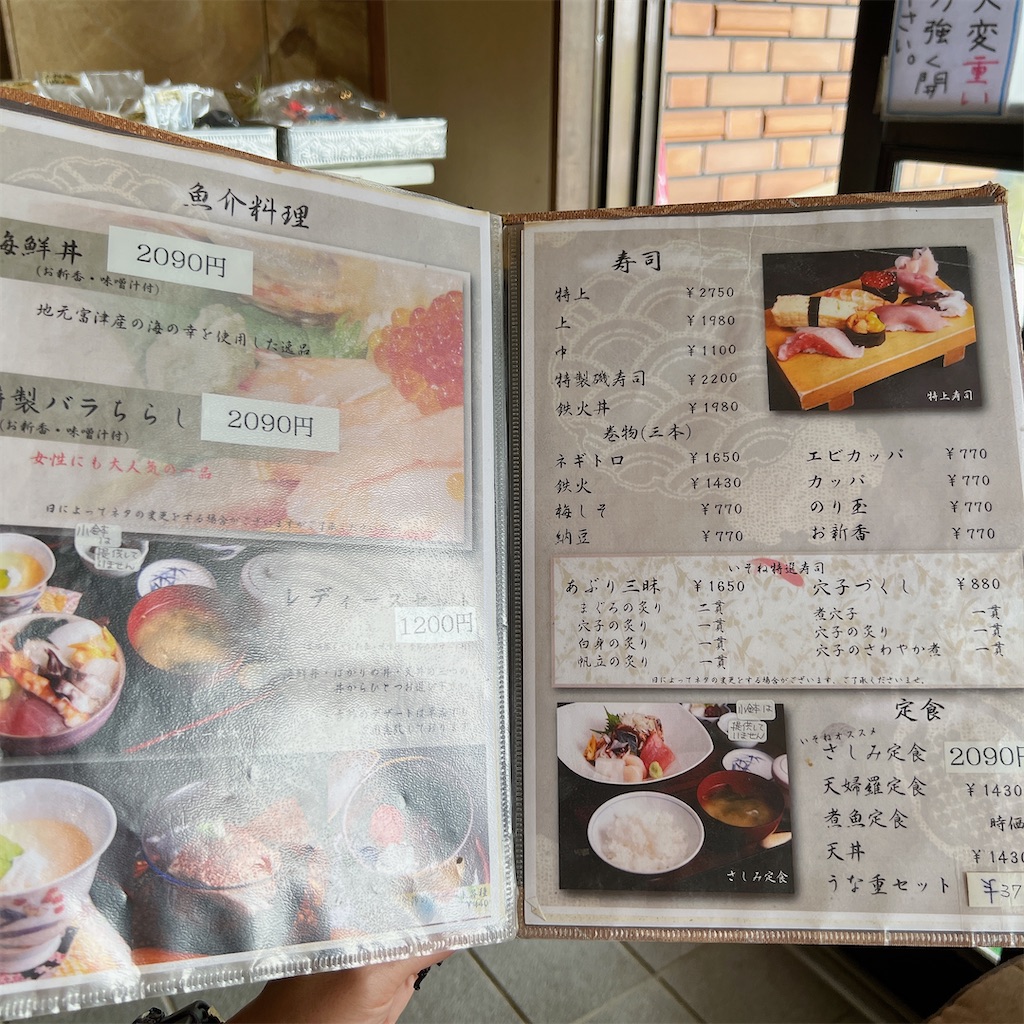 大変重い
力強く開
さい。
魚介料理
海鮮丼 2090円
(お新香・味噌汁付)
地元富津産の海の幸を使用した逸品
特製バラちらし 2090円
(お新香・味噌汁付)
女性にも大人気の一品
日によってネタの変更とする場合がございます
小鉢は
提供して
いません
レディースセット
1200円
丼からひとつお選び
寿司
特上 ¥2750
上 ¥1980
巾 ¥1100
特製磯寿司 ¥2200
鉄火丼 ¥1980
巻物(三本)
ネギトロ ¥1650
鉄火 ¥1430
梅しそ ¥770
納豆 ¥770
エビカッパ ¥770
カッパ ¥770
のり玉 ¥770
お新香 ¥770
特上寿司
いそね特選寿司
あぶり三昧 ¥1650
まぐろの炙り 二貫
穴子の炙り 一貫
白身の炙り 一貫
帆立の炙り 一貫
穴子づくし ¥880
煮穴子 一貫
穴子の炙り 一貫
穴子のさわやか煮 一貫
日によってネタの変更とする場合がございます、ご了承くださいませ。
小鉢は
提供して
いません
さしみ定食
定食
いそねオススメ
さしみ定食 2090円
天婦羅定食 ¥1430
煮魚定食 時価
天丼 ¥1430
うな重セット ¥37